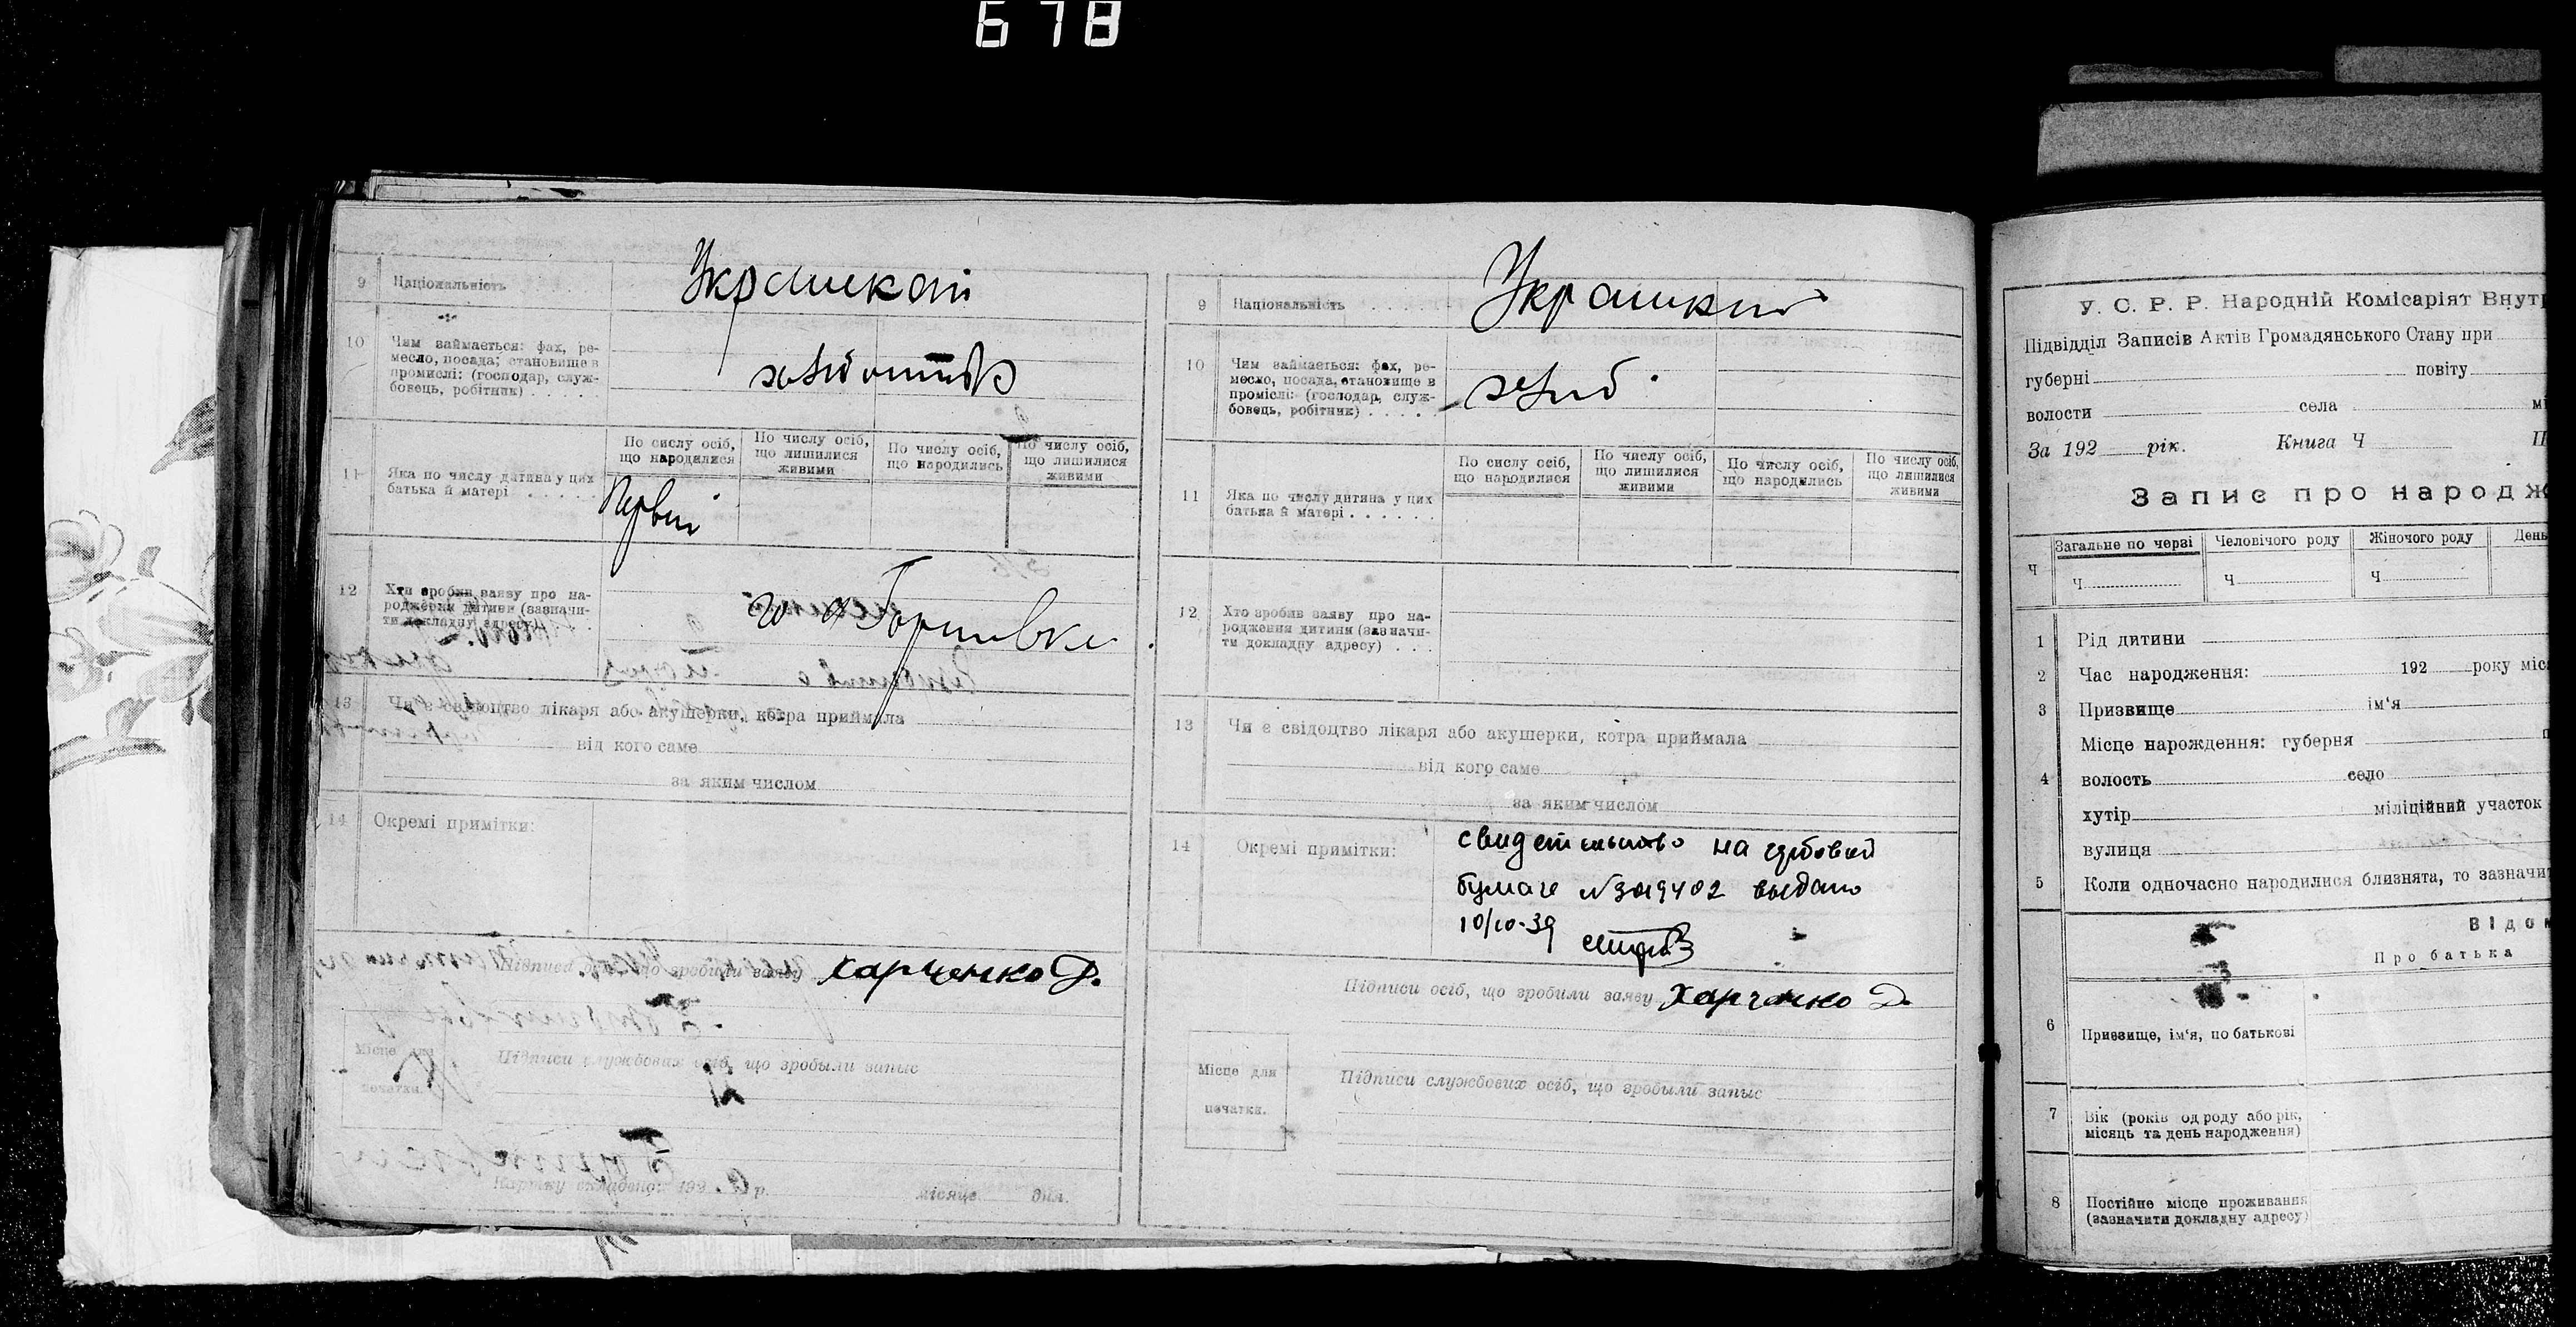 678
9 Національність
Украинкаи
10 Чим займається: фах, ре-
месло, посада; становище в
промислі: (господар, служ-
бовець, робітник)
11 Яка по числу дитина у цих
батька й матері
По сислу осіб,
що народилися
По числу осіб,
що лишилися
живими
По числу осіб,
що народились
По числу осіб,
що лишилися
живими
Первий
12 Хто зробив заяву про на-
родження дитини (зазначи-
ти докладну адресу)
13 Чи є свідоцтво лікаря або акушерки, котра приймала
від кого саме
за яким числом
14 Окремі примітки:
Підписи осіб, що зробили заяву Харченко Д.
Місце для
печатки.
Підписи службових осіб, що зробыли запыс
Картку складено: 192 р. місяця дня.
9 Національність
Украинкии
10 Чим займається: фах, ре-
месло, посада, становище в
промислі: (господар, служ-
бовець, робітник)
11 Яка по числу дитина у цих
батька й матері
По сислу осіб,
що народилися
По числу осіб,
що лишилися
живими
По числу осіб,
що народились
По числу осіб,
що лишилися
живими
12 Хто зробив заяву про на-
родження дитини (зазначи-
ти докладну адресу)
13 Чи є свідоцтво лікаря або акушерки, котра приймала
від кого саме
за яким числом
14 Окремі примітки:
свидетельство на гербовой
бумаге выдано
10/10-39
Підписи осіб, що зробили заяву Харченко Д.
Місце для
печатки.
Підписи службових осіб, що зробыли запыс
У. С. Р. Р. Народній Комісаріят Внут
Підвідділ Записів Актів Громадянського Стану при
губерні повіту
волости села мі
За 192 рік. Книга Ч П
Запис про народж
Ч
Загальне по черзі
Ч
Человічого роду
Ч
Жіночого роду
Ч
День
1 Рід дитини
2 Час народження: 192 року міс
3 Призвище ім'я
4 Місце нарождення: губерня
волость село
хутір міліційний участок
вулиця
5 Коли одночасно народилися близнята, то зазначи
Відом
Про батька
6 Призвище, ім'я, по батькові
7 Вік (років од роду або рік,
місяць та день народження)
8 Постійне місце проживання
(зазначити докладну адресу)